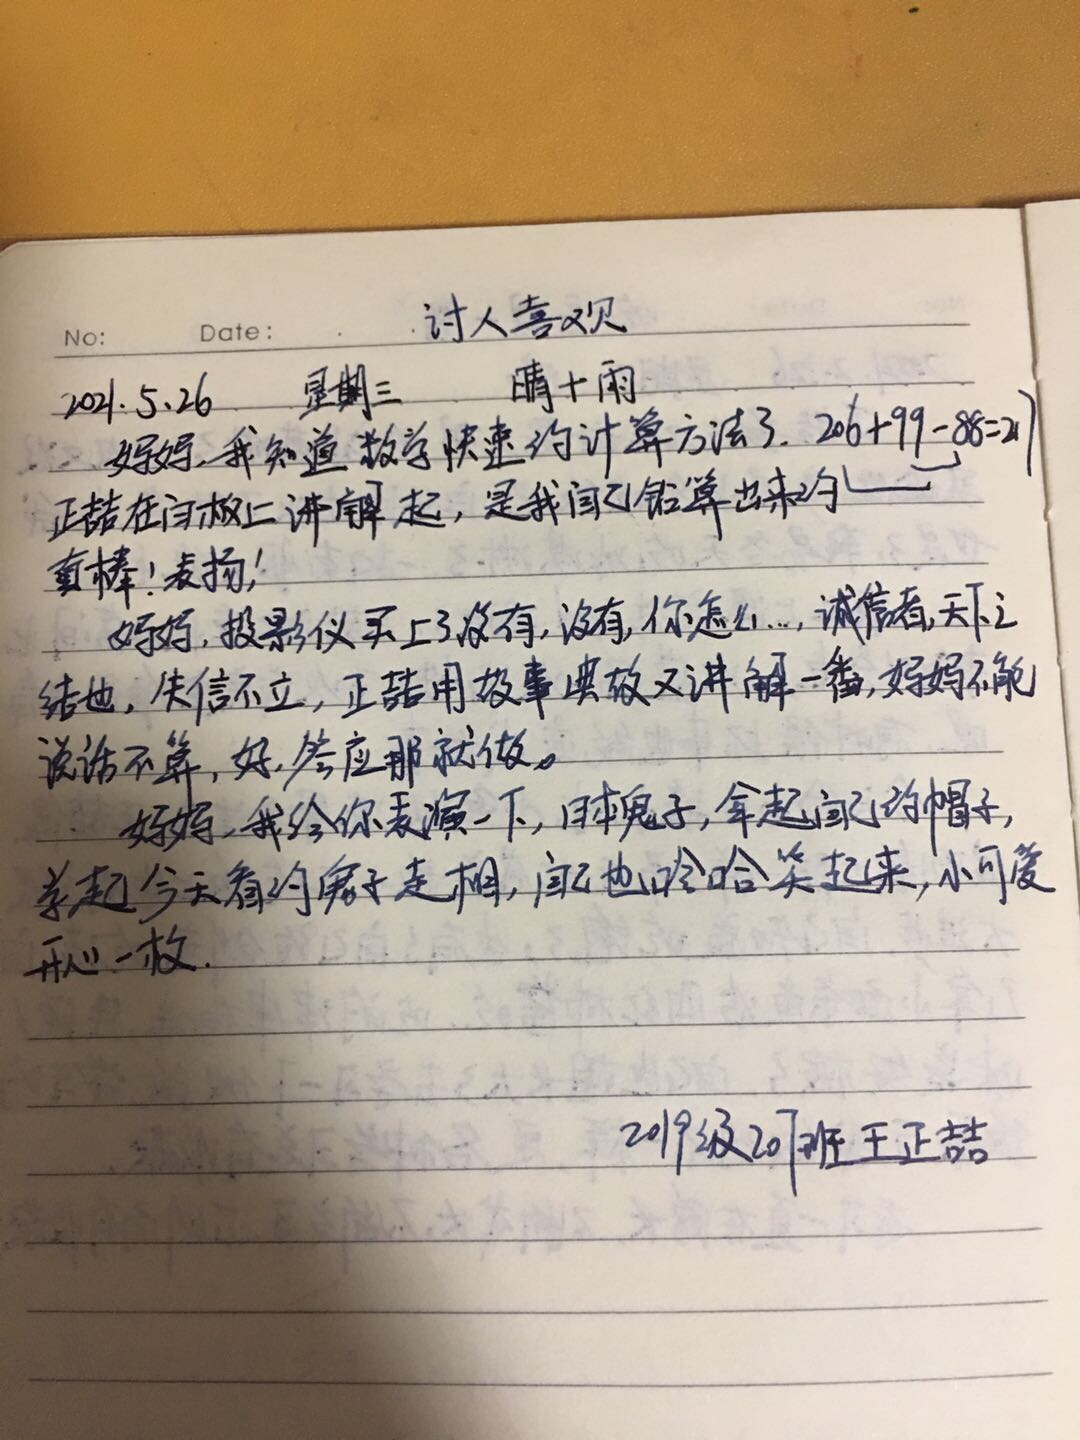 No: Date: 讨人喜欢
2021.5.26 星期三 晴十雨
妈妈,我知道数学快速的计算方法了. 206+99-88=217
正喆在白板上讲解起,是我自己铅算出来的
真棒!表扬!
妈妈,投影仪买上了没有,没有,你怎么...,诚信者,天下之
结也,失信不立,正喆用故事典故又讲解一番,妈妈不能
说话不算,好,答应那就做。
妈妈,我给你表演一下,日本鬼子,拿起自己的帽子,
学起今天看的鬼子走相,自己也哈哈笑起来,小可爱
开心一枚.
2019级207班王正喆